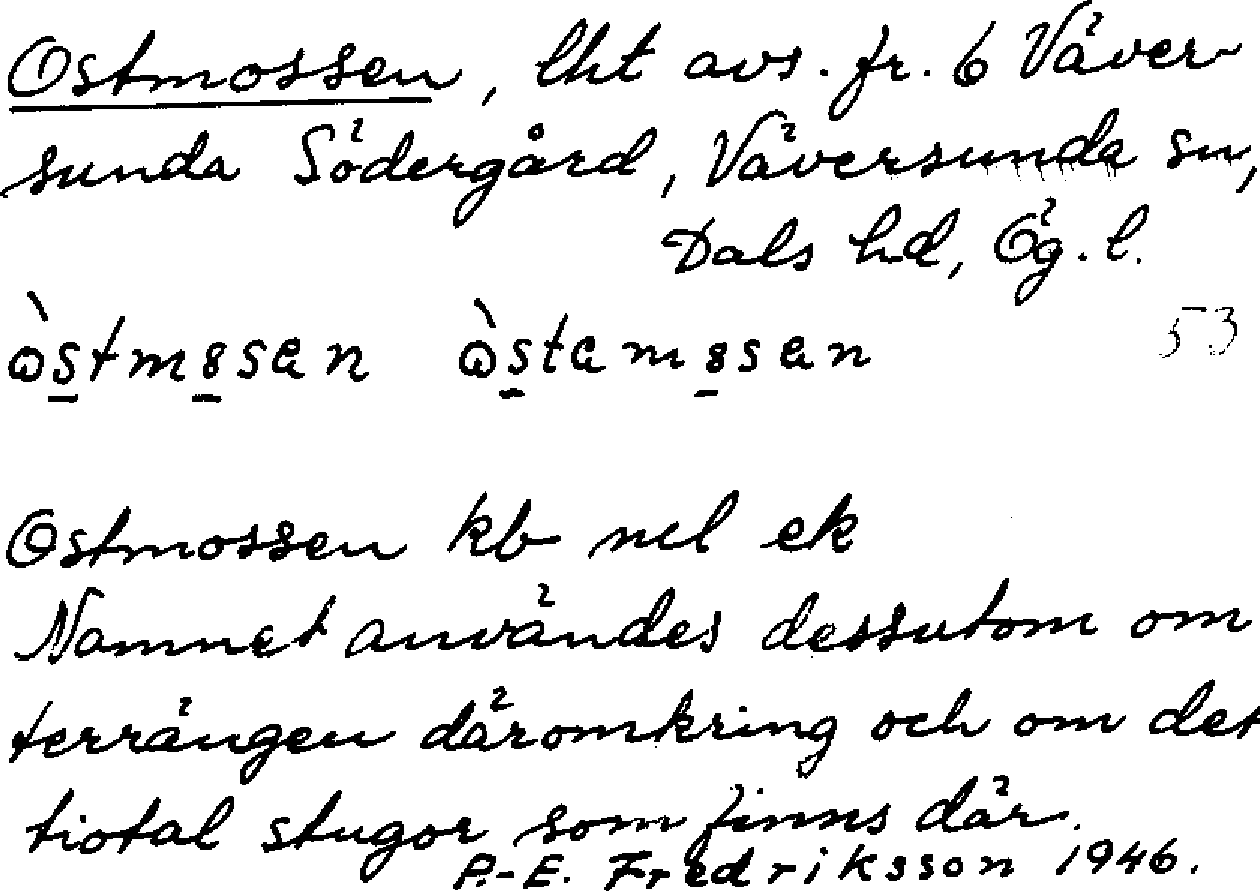 Ostmossen, lht avs. fr. 6 Väver-
sunda Södergård, Väversunda sn,
Dals hd, Ög. l.
53
Ostmossen kb nel ek
Namnet användes dessutom om
terrängen däromkring och om det
tiotal stugor som finns där.
P.-E. Fredriksson 1946.